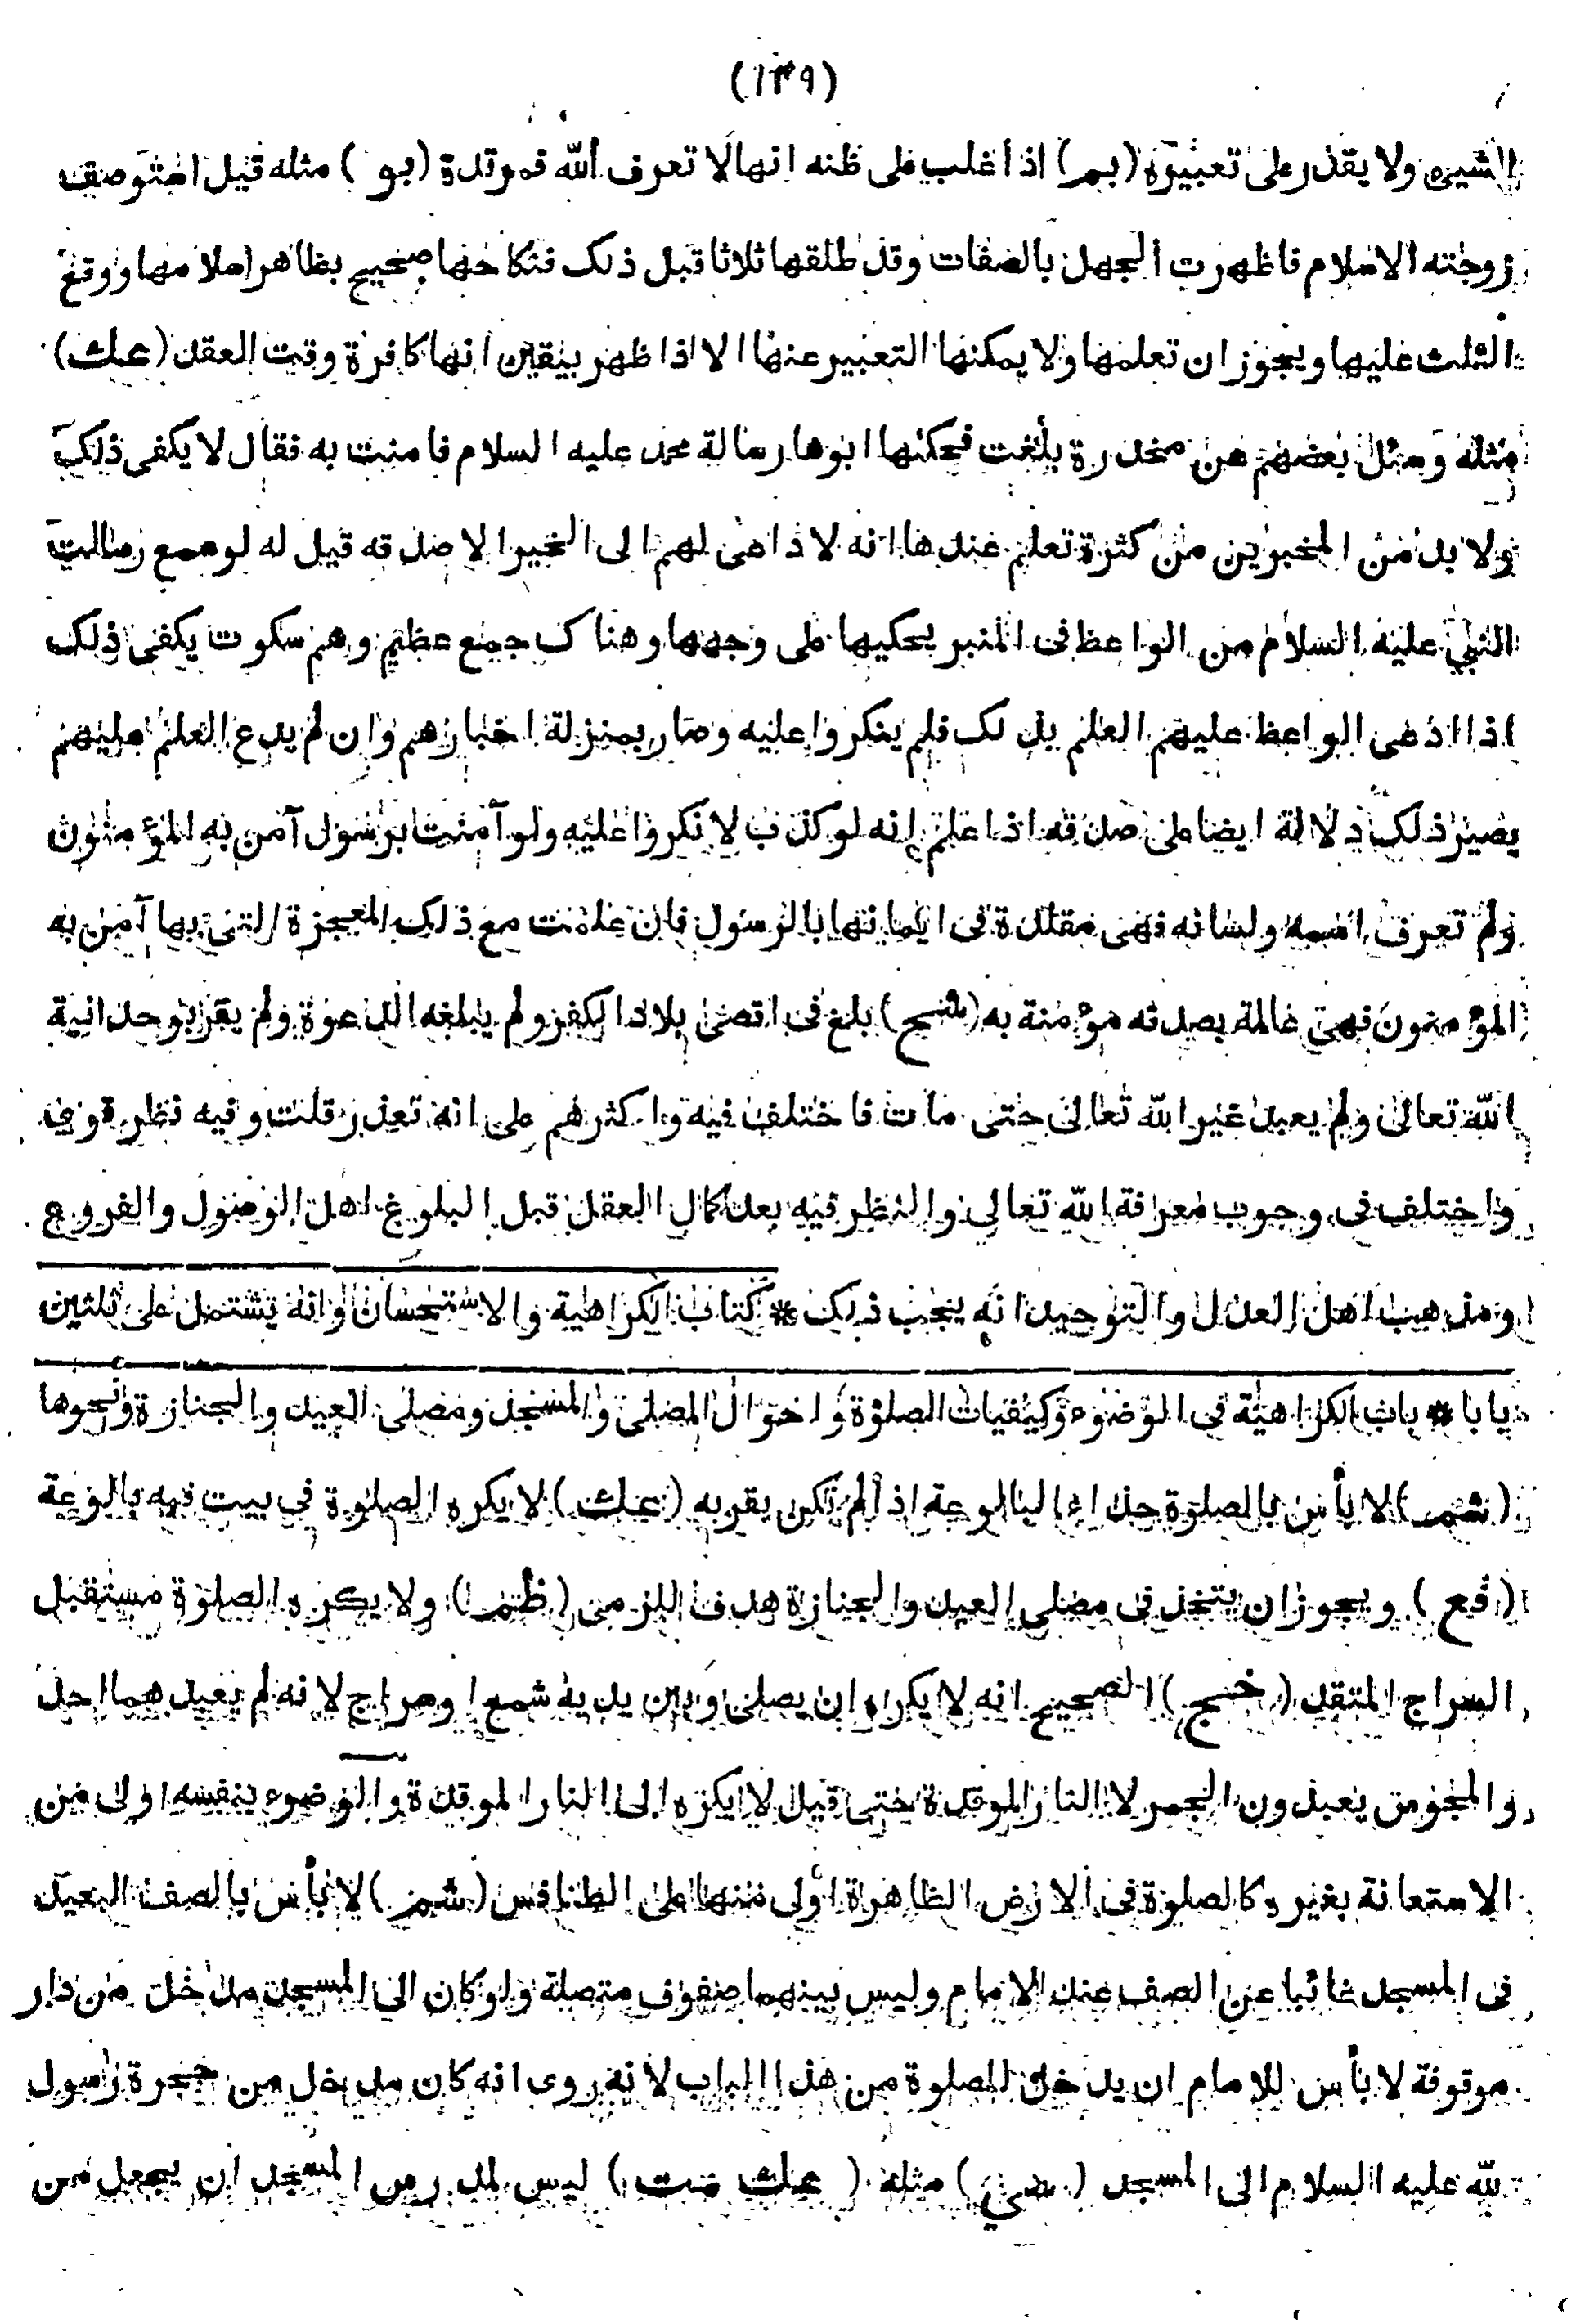 (١٤٩)
الشيئ ولا يقدر على تعبيره (بم) اذا غلب على ظنه انها لا تعرف الله فمرتدة (بو) مثله قيل استوصف
زوجته الاسلام فاظهرت الجهل بالصفات وقد طلقها ثلاثا قبل ذلك فنكاحها صحيح بظاهر اسلامها ووقع
الثلث عليها ويجوز ان تعلمها ولا يمكنها التعبير عنها الا اذا ظهر بيقين انها كافرة وقت العقد (عك)
مثله وسئل بعضهم عن مخدرة بلغت فحكى لها ابوها رسالة محمد عليه السلام فامنت به فقال لا يكفى ذلك
ولا بد من المخبرين من كثرة تعلم عندها انه لا داعى لهم الى الخبر الا صدقه قيل له لو سمع رسالت
النبي عليه السلام من الواعظ فى المنبر يحكيها على وجهها وهناك جمع عظيم وهم سكوت يكفى ذلك
اذا ادعى الواعظ عليهم العلم بذلك فلم ينكروا عليه وصار بمنزلة اخبارهم وان لم يدع العلم عليهم
يصير ذلك دلالة ايضا على صدقه اذا علم انه لو كذب لانكروا عليه ولو آمنت برسول آمن به المؤمنون
ولم تعرف اسمه ولسانه فهى مقلدة فى ايمانها بالرسول فان علمت مع ذلك المعجزة التى بها آمن به
المؤمنون فهى عالمة بصدقه مؤمنة به (شيح) بلغ فى اقصى بلاد الكفر ولم يبلغه الدعوة ولم يقر بوحدانية
الله تعالى ولم يعبد غير الله تعالى حتى مات فاختلف فيه واكثرهم على انه تعذر قلت وفيه نظر قوى
واختلف فى وجوب معرفة الله تعالى والنظر فيه بعد كمال العقل قبل البلوغ اهل الوصول والفروع
ومذهب اهل العدل والتوحيد انه يجب ذلك * كتاب الكراهية والاستحسان وانه تشتمل على ثلثين
بابا * باب الكراهية فى الوضوء وكيفيات الصلوة واحوال المصلى والمسجد ومصلى العيد والجنازة ونحوها
(شم) لا بأس بالصلوة حذاء البالوعة اذا لم تكن بقربه (عك) لا يكره الصلوة فى بيت فيه بالوعة
(قع) ويجوز ان يتخذ فى مصلى العيد والجنازة هدف للرمى (ظم) ولا يكره الصلوة مستقبل
السراج المتقد (خج) الصحيح انه لا يكره ان يصلى وبين يديه شمع او سراج لانه لم يعبدهما احد
والمجوس يعبدون الجمر لا النار الموقدة حتى قيل لا يكره الى النار الموقدة والوضوء بنفسه اولى من
الاستعانة بغيره كالصلوة فى الارض الطاهرة اولى منها على الطنافس (شم) لا بأس بالصف البعيد
فى المسجد غائبا عن الصف عند الامام وليس بينهما صفوف متصلة ولو كان الى المسجد مدخل من دار
موقوفة لا بأس للامام ان يدخل للصلوة من هذا الباب لانه روى انه كان يدخل من حجرة رسول
لله عليه السلام الى المسجد مثله (عك مت) ليس لمدرس المسجد ان يجعل من